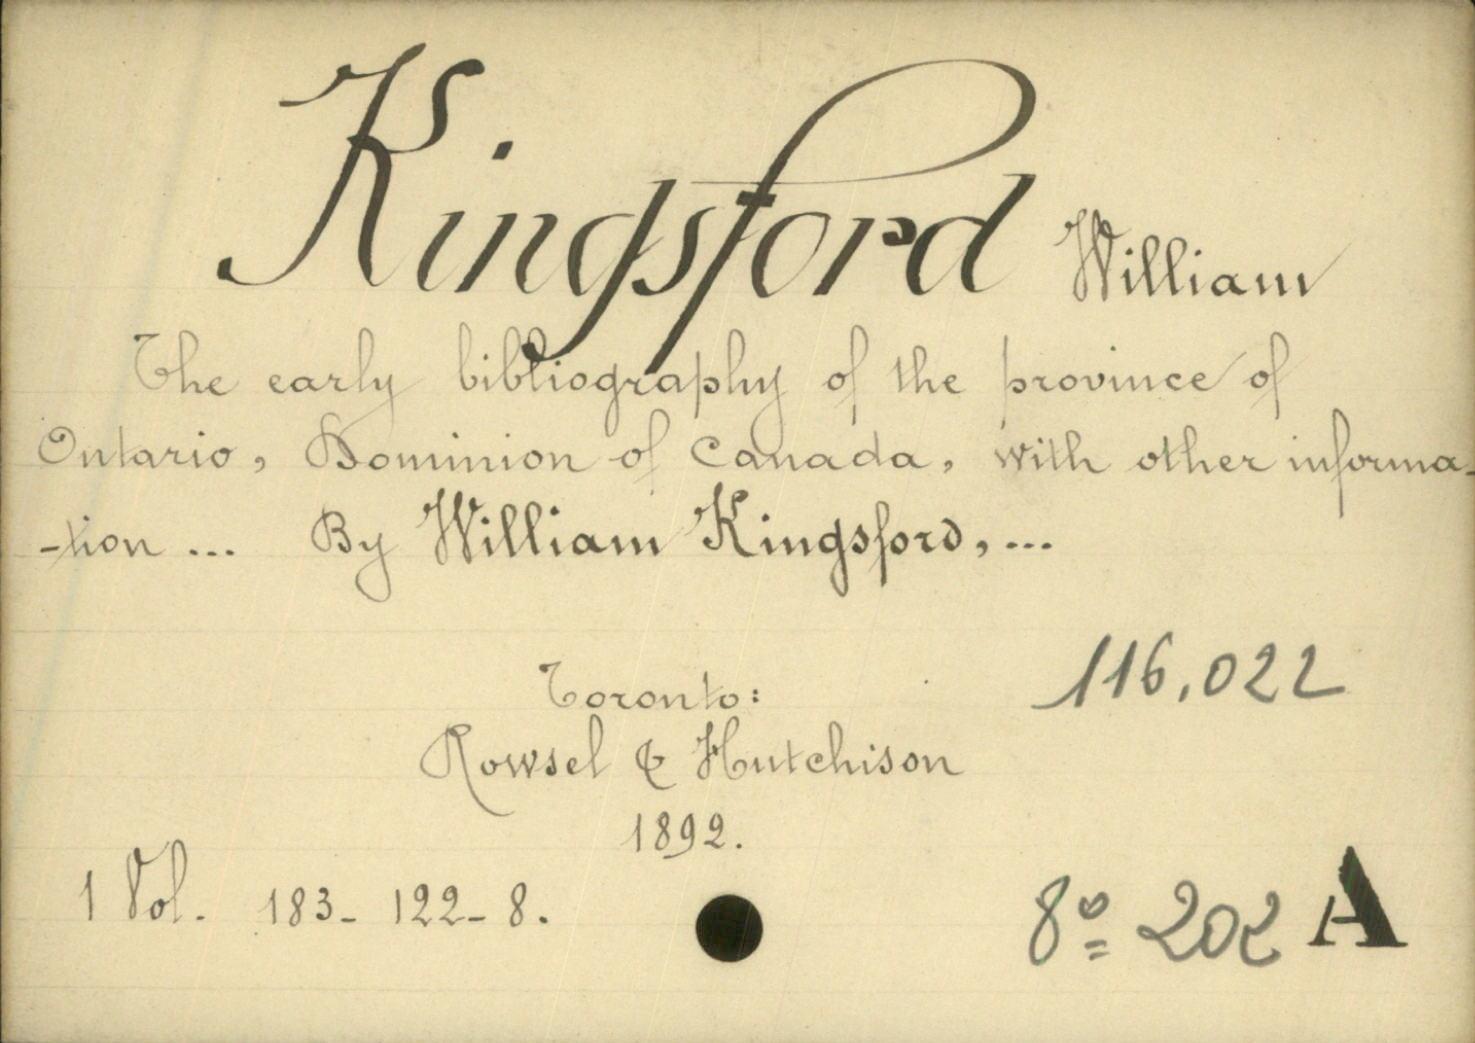 Kingsford William
The early bibliography of the province of
Ontario, Dominion of Canada, with other informa-
-tion ... By William Kingsford, ...
116,022
Toronto:
Rowsel & Hutchison
1892.
1 Vol. 183- 122- 8.
8º 202 A